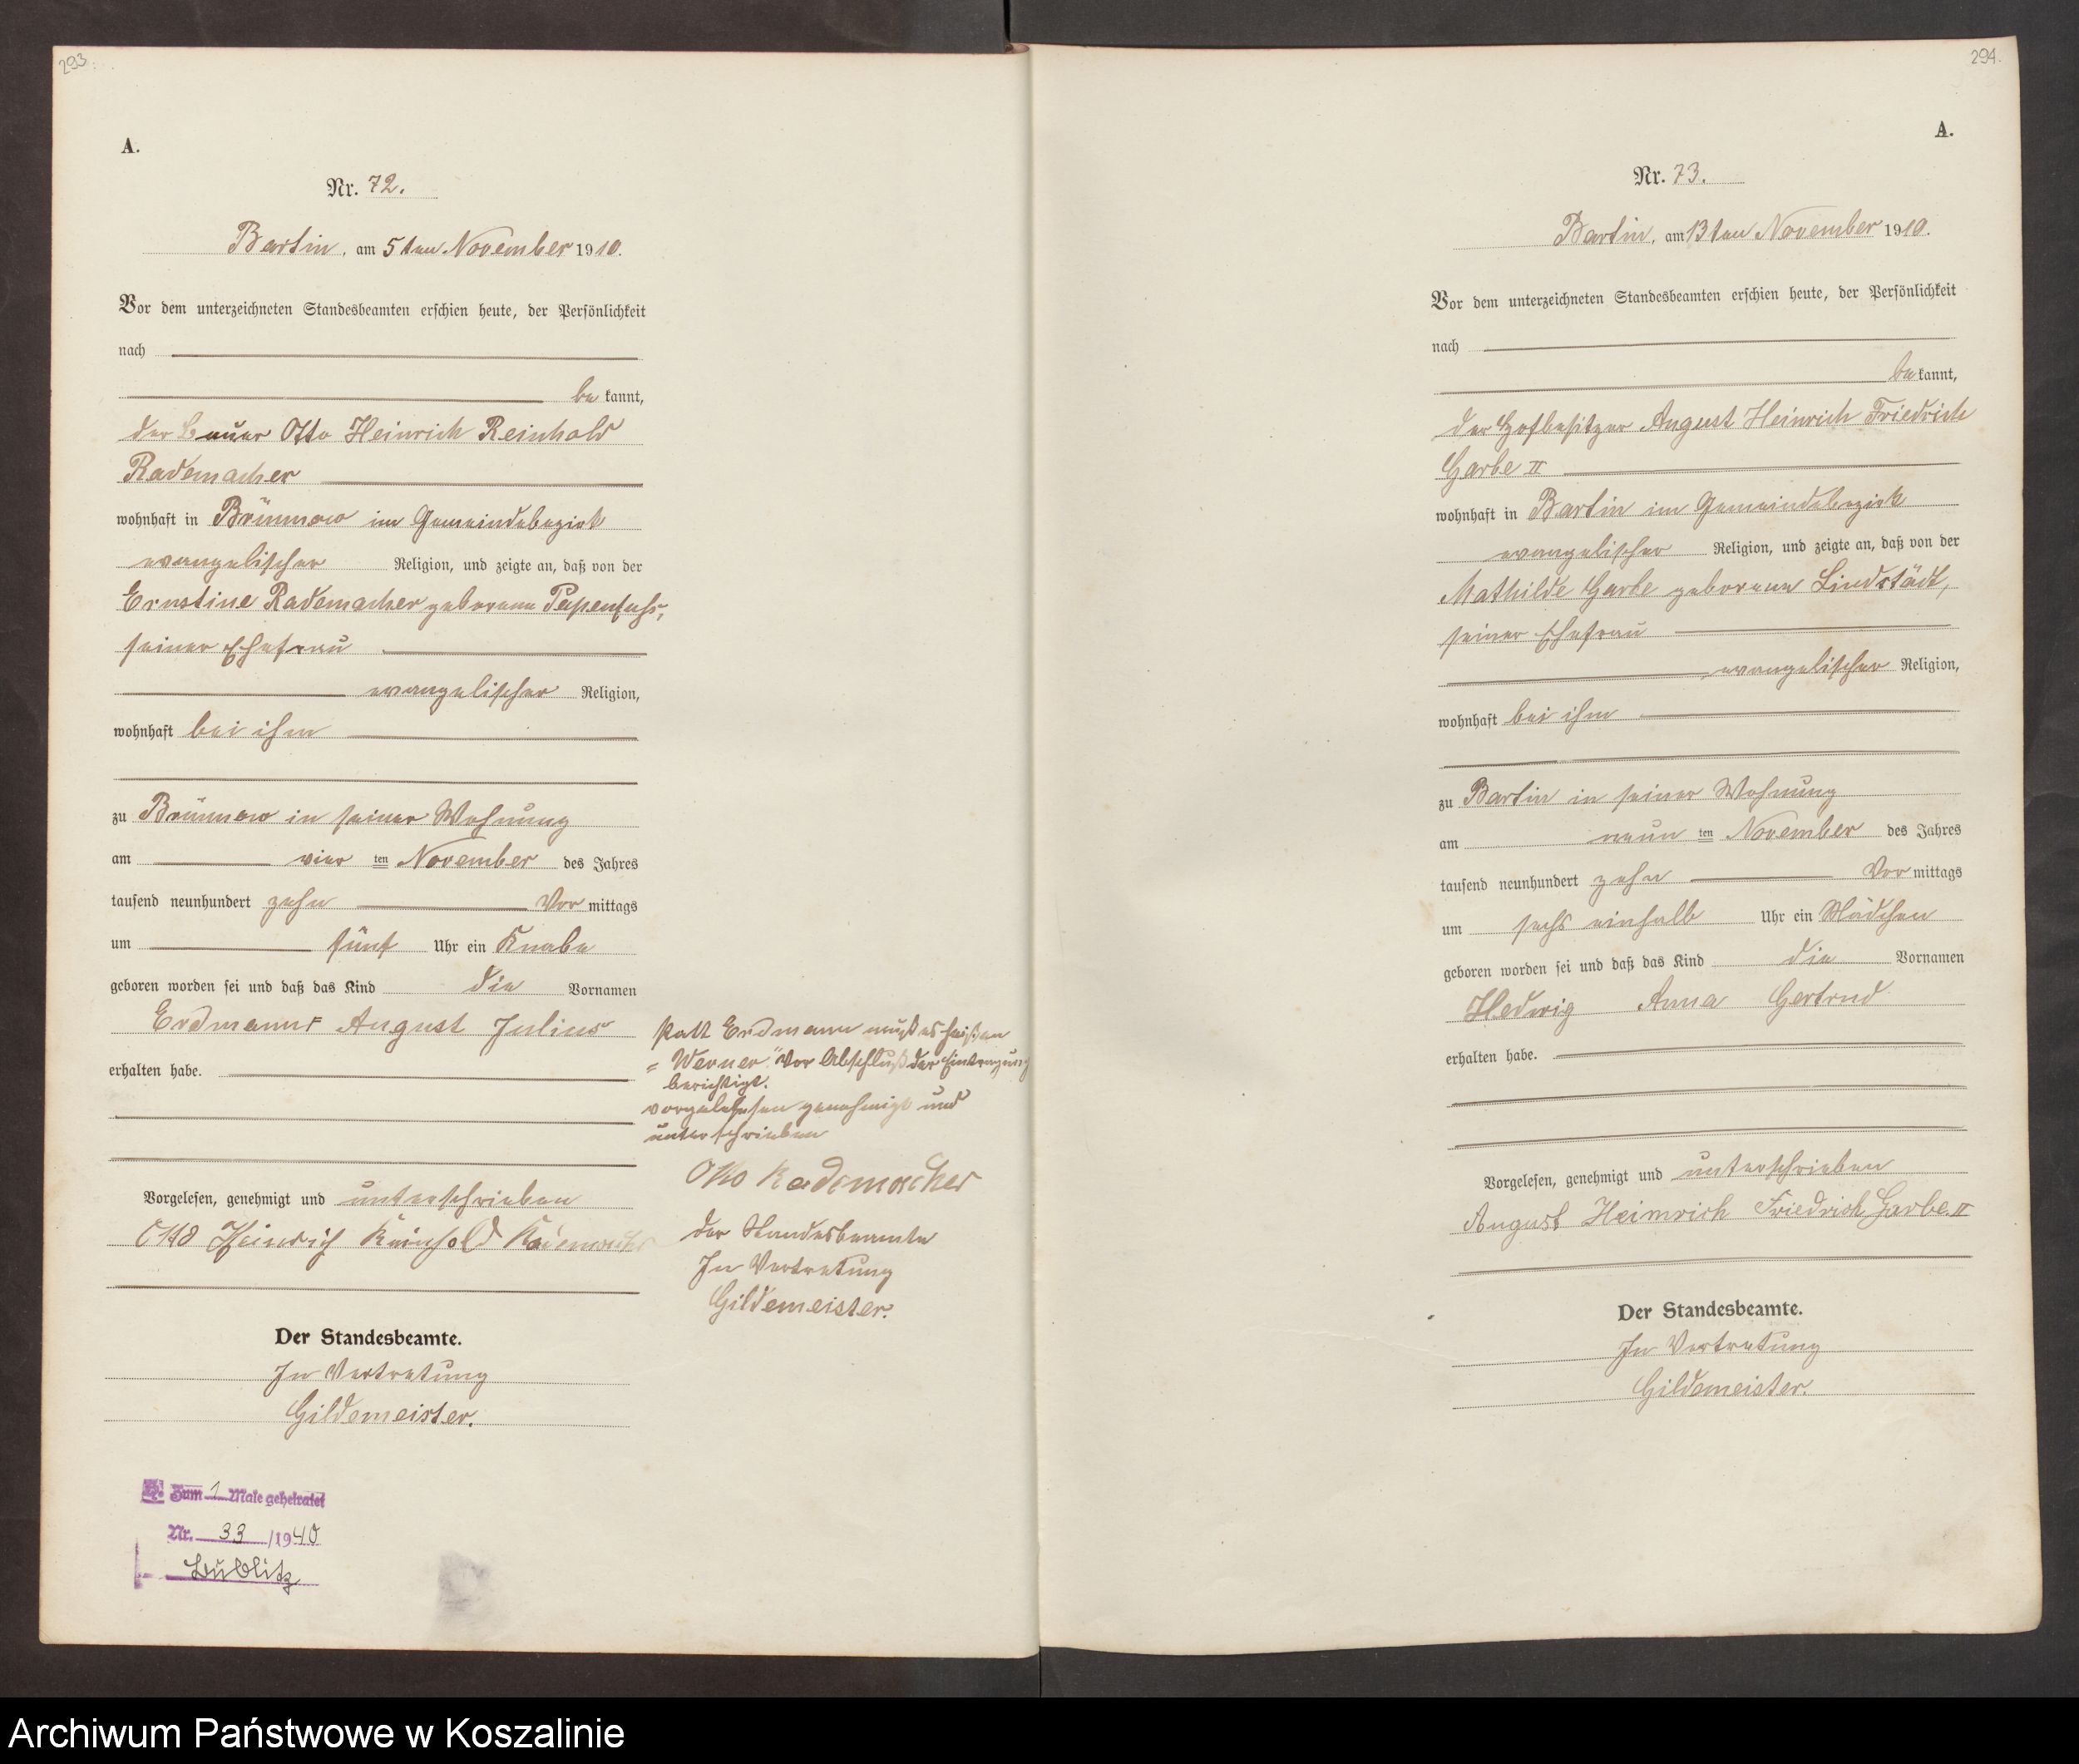 293.
A.
Nr. 72.
Bartin, am 5ten November 1910.
Vor dem unterzeichneten Standesbeamten erschien heute, der Persönlichkeit
nach
be kannt,
der Bauer Otto Heinrich Reinhold
Rademacher
wohnhaft in Brünnow im Gemeindebezirk
evangelischer Religion, und zeigte an, daß von der
Ernstine Rademacher geborene Papenfuhs,
seiner Ehefrau
evangelischer Religion,
wohnhaft bei ihm
zu Brünnow in seiner Wohnung
am vier ten November des Jahres
tausend neunhundert zehn Vor mittags
um fünf Uhr ein Knabe
geboren worden sei und daß das Kind die Vornamen
Erdmann August Julius
erhalten habe.
Vorgelesen, genehmigt und unterschrieben
Otto Heinrich Reinhold Rademacher
Der Standesbeamte.
In Vertretung
Gildemeister.
statt Erdmann muß es heißen
"Werner" Vor Abschluß der Eintragung
berichtigt.
vorgelesen genehmigt und
unterschrieben
Otto Rademacher
der Standesbeamte
In Vertretung
Gildemeister.
Zum 1 Male geheiratet
Nr. 33 /1940
Bublitz
294.
A.
Nr. 73.
Bartin, am 13ten November 1910.
Vor dem unterzeichneten Standesbeamten erschien heute, der Persönlichkeit
nach
be kannt,
der Hofbesitzer August Heinrich Friedrich
Garbe II
wohnhaft in Bartin im Gemeindebezirk
evangelischer Religion, und zeigte an, daß von der
Mathilde Garbe geborene Lindstädt,
seiner Ehefrau
evangelischer Religion,
wohnhaft bei ihm
zu Bartin in seiner Wohnung
am neun ten November des Jahres
tausend neunhundert zehn Vor mittags
um sechs einhalb Uhr ein Mädchen
geboren worden sei und daß das Kind die Vornamen
Hedwig Anna Gertrud
erhalten habe.
Vorgelesen, genehmigt und unterschrieben
August Heinrich Friedrich Garbe II
Der Standesbeamte.
In Vertretung
Gildemeister.
Archiwum Państwowe w Koszalinie